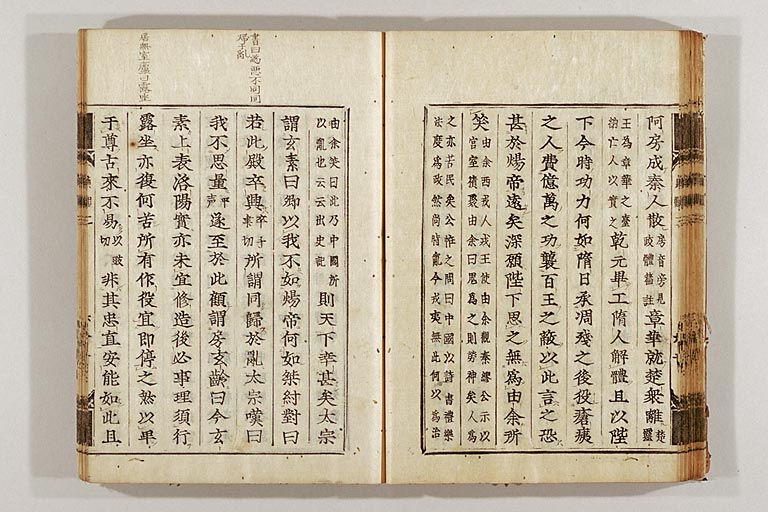 阿房成秦人散房音旁見政體篇註章華就楚衆離楚靈
王為章華之臺納亡人以實之乾元畢工隋人解體且以陛
下今時功力何如隋日承凋殘之後役瘡痍
之人費億萬之功襲百王之敝以此言之恐
甚於煬帝遠矣深願陛下思之無為由余所
笑由余西戎人戎王使由余觀秦繆公示以宮室積聚由余曰鬼為之則勞神矣人為
之亦苦民矣公怪之問曰中國以詩書禮樂法度為政然尚時亂今戎夷無此何以為治
由余笑曰此乃中國所以亂也云云出史記則天下幸甚矣太宗
謂玄素曰卿以我不如煬帝何如桀紂對曰
若此殿卒興卒子聿切所謂同歸於亂太宗嘆曰
我不思量平聲遂至於此顧謂房玄齡曰今玄
素上表洛陽實亦未宜修造後必事理須行
露坐亦復何苦所有作役宜即停之然以卑
干尊古來不易以豉切非其忠直安能如此且
書曰為惡不同同
歸于亂
居無室廬曰露坐